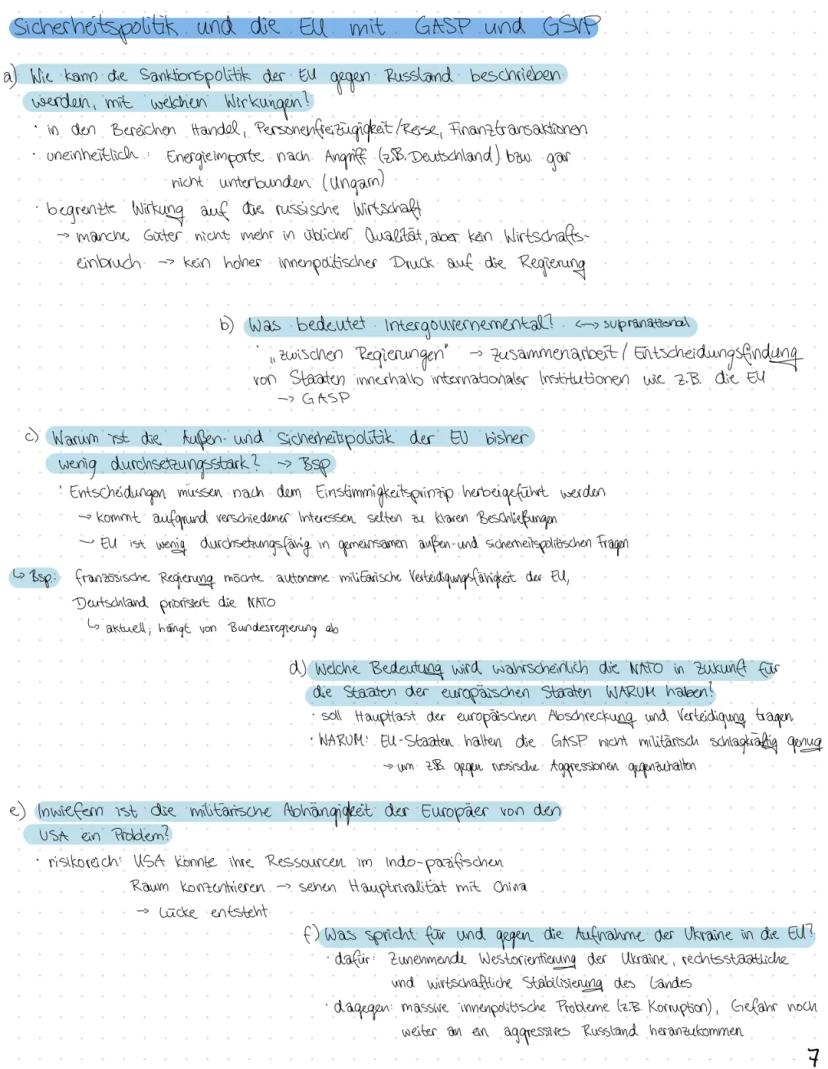 Sicherheitspolitik und die EU mit GASP und GSVP
a) Wie kann die Sanktionspolitik der EU gegen Russland beschrieben
werden, mit welchen Wirkungen?
· in den Bereichen Handel, Personenfreizügigkeit/Reise, Finanztransaktionen
· uneinheitlich: Energieimporte nach Angriff (z.B. Deutschland) bzw. gar
nicht unterbunden (Ungarn)
· begrenzte Wirkung auf die russische Wirtschaft
→ manche Güter nicht mehr in üblicher Qualität, aber kein Wirtschafts-
einbruch → kein hoher innenpolitischer Druck auf die Regierung
b) Was bedeutet Intergouvernemental? ↔ supranational
· „zwischen Regierungen" → Zusammenarbeit / Entscheidungsfindung
von Staaten innerhalb internationaler Institutionen wie z.B. die EU
→ GASP
c) Warum ist die Außen- und Sicherheitpolitik der EU bisher
wenig durchsetzungsstark? → Bsp
· Entscheidungen müssen nach dem Einstimmigkeitsprinzip herbeigeführt werden
→ kommt aufgrund verschiedener Interessen selten zu klaren Beschließungen
→ EU ist wenig durchsetzungsfähig in gemeinsamen außen- und sicherheitspolitischen Fragen
↳ Bsp: französische Regierung möchte autonome militärische Verteidigungsfähigkeit der EU,
Deutschland priorisiert die NATO
↳ aktuell; hängt von Bundesregierung ab
d) Welche Bedeutung wird wahrscheinlich die NATO in Zukunft für
die Staaten der europäischen Staaten WARUM haben?
· soll Hauptlast der europäischen Abschreckung und Verteidigung tragen
· WARUM: EU-Staaten halten die GASP nicht militärisch schlagkräftig genug
→ um z.B. gegen russische Aggressionen gegenzuhalten
e) Inwiefern ist die militärische Abhängigkeit der Europäer von den
USA ein Problem?
· risikoreich: USA könnte ihre Ressourcen im Indo-pazifischen
Raum konzentrieren → sehen Hauptrivalität mit China
→ Lücke entsteht
f) Was spricht für und gegen die Aufnahme der Ukraine in die EU?
· dafür: Zunehmende Westorientierung der Ukraine, rechtsstaatliche
und wirtschaftliche Stabilisierung des Landes
· dagegen: massive innenpolitische Probleme (z.B. Korruption), Gefahr noch
weiter an ein aggressives Russland heranzukommen
7